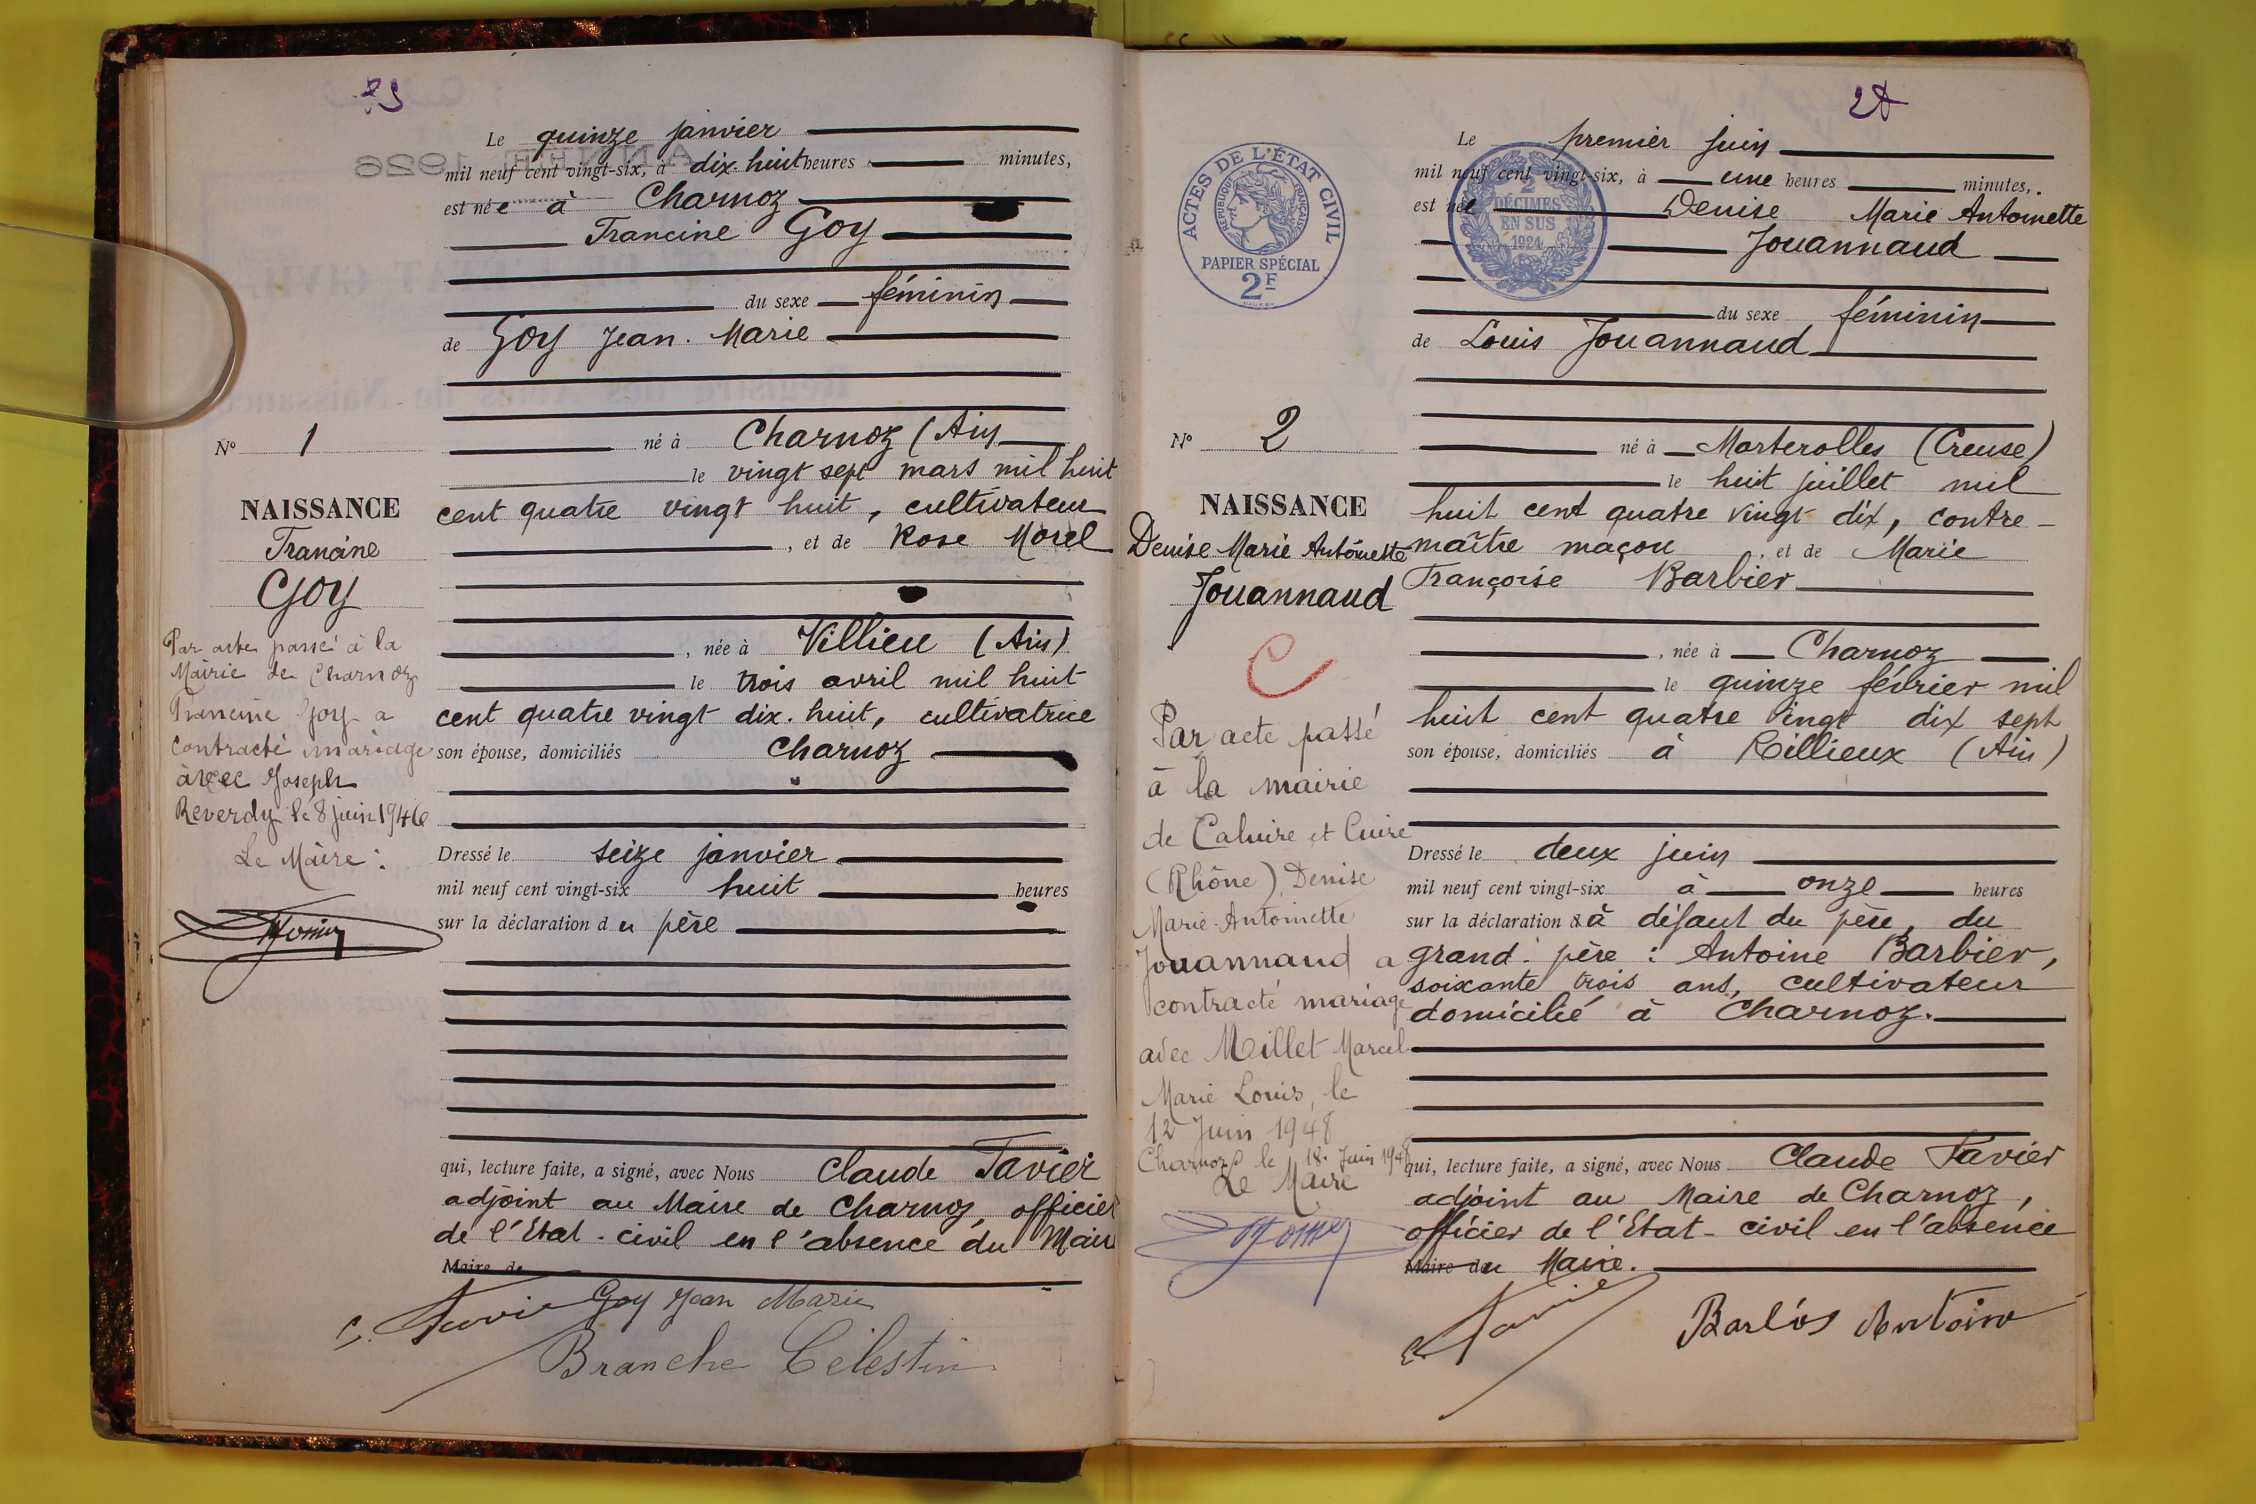 Le quinze janvier
mil neuf cent vingt-six, à dix-huit heures minutes,
est née à Charnoz
Francine Goy
du sexe féminin
de Goy Jean-Marie
né à Charnoz (Ain
le vingt sept mars mil huit
cent quatre vingt huit, cultivateur
, et de Rose Morel
, née à Villieu (Ain)
le trois avril mil huit
cent quatre vingt dix-huit, cultivatrice
son épouse, domiciliés Charnoz
Dressé le seize janvier
mil neuf cent vingt-six huit heures
sur la déclaration du père
qui, lecture faite, a signé, avec Nous Claude Tavier
adjoint au Maire de Charnoz, officier
de l'Etat-civil en l'absence du Maire
Maire de
Goy Jean Marie
Branche Célestin
Nº 1
NAISSANCE
Francine
Goy
Par acte passé à la
Mairie de Charnoz
Francine Goy a
contracté mariage
avec Joseph
Reverdy le 8 juin 1946
Le Maire :
28
Le premier juin
mil neuf cent vingt-six, à une heures minutes,
est née Denise Marie Antoinette
Jouannaud
du sexe féminin
de Louis Jouannaud
né à Morterolles (Creuse)
le huit juillet mil
huit cent quatre vingt dix, contre-
maître maçon, et de Marie
Françoise Barbier
, née à Charnoz
le quinze février mil
huit cent quatre vingt dix sept
son épouse, domiciliés à Rillieux (Ain)
Dressé le deux juin
mil neuf cent vingt-six à onze heures
sur la déclaration d à défaut du père, du
grand-père : Antoine Barbier,
soixante trois ans, cultivateur
domicilié à Charnoz.
qui, lecture faite, a signé, avec Nous Claude Tavier
adjoint au Maire de Charnoz,
officier de l'Etat-civil en l'absence
Maire du Maire.
ACTES DE L'ÉTAT CIVIL
RÉPUBLIQUE FRANÇAISE
PAPIER SPÉCIAL
2F
2
DÉCIMES
EN SUS
1924
Nº 2
NAISSANCE
Denise Marie Antoinette
Jouannaud
C
Par acte passé
à la mairie
de Caluire et Cuire
(Rhône), Denise
Marie-Antoinette
Jouannaud a
contracté mariage
avec Millet Marcel
Marie Louis, le
12 Juin 1948
Charnoz le 18 Juin 1948
Le Maire